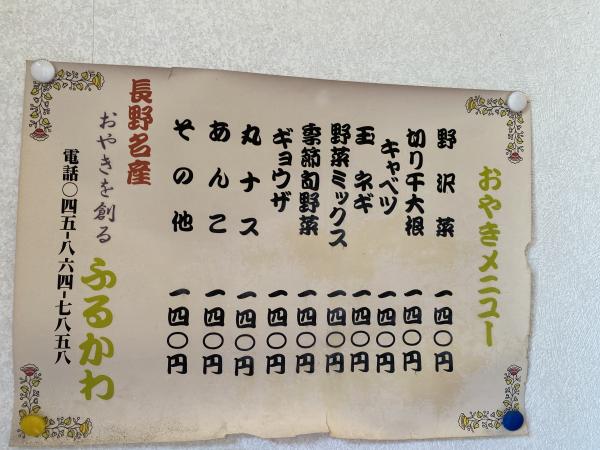 おやきメニュー
野沢菜 一四〇円
切り干大根 一四〇円
キャベツ 一四〇円
玉ネギ 一四〇円
野菜ミックス 一四〇円
季節旬野菜 一四〇円
ギョウザ 一四〇円
丸ナス 一四〇円
あんこ 一四〇円
その他 一四〇円
長野名産
おやきを創る
ふるかわ
電話〇四五-八六四-七八五八